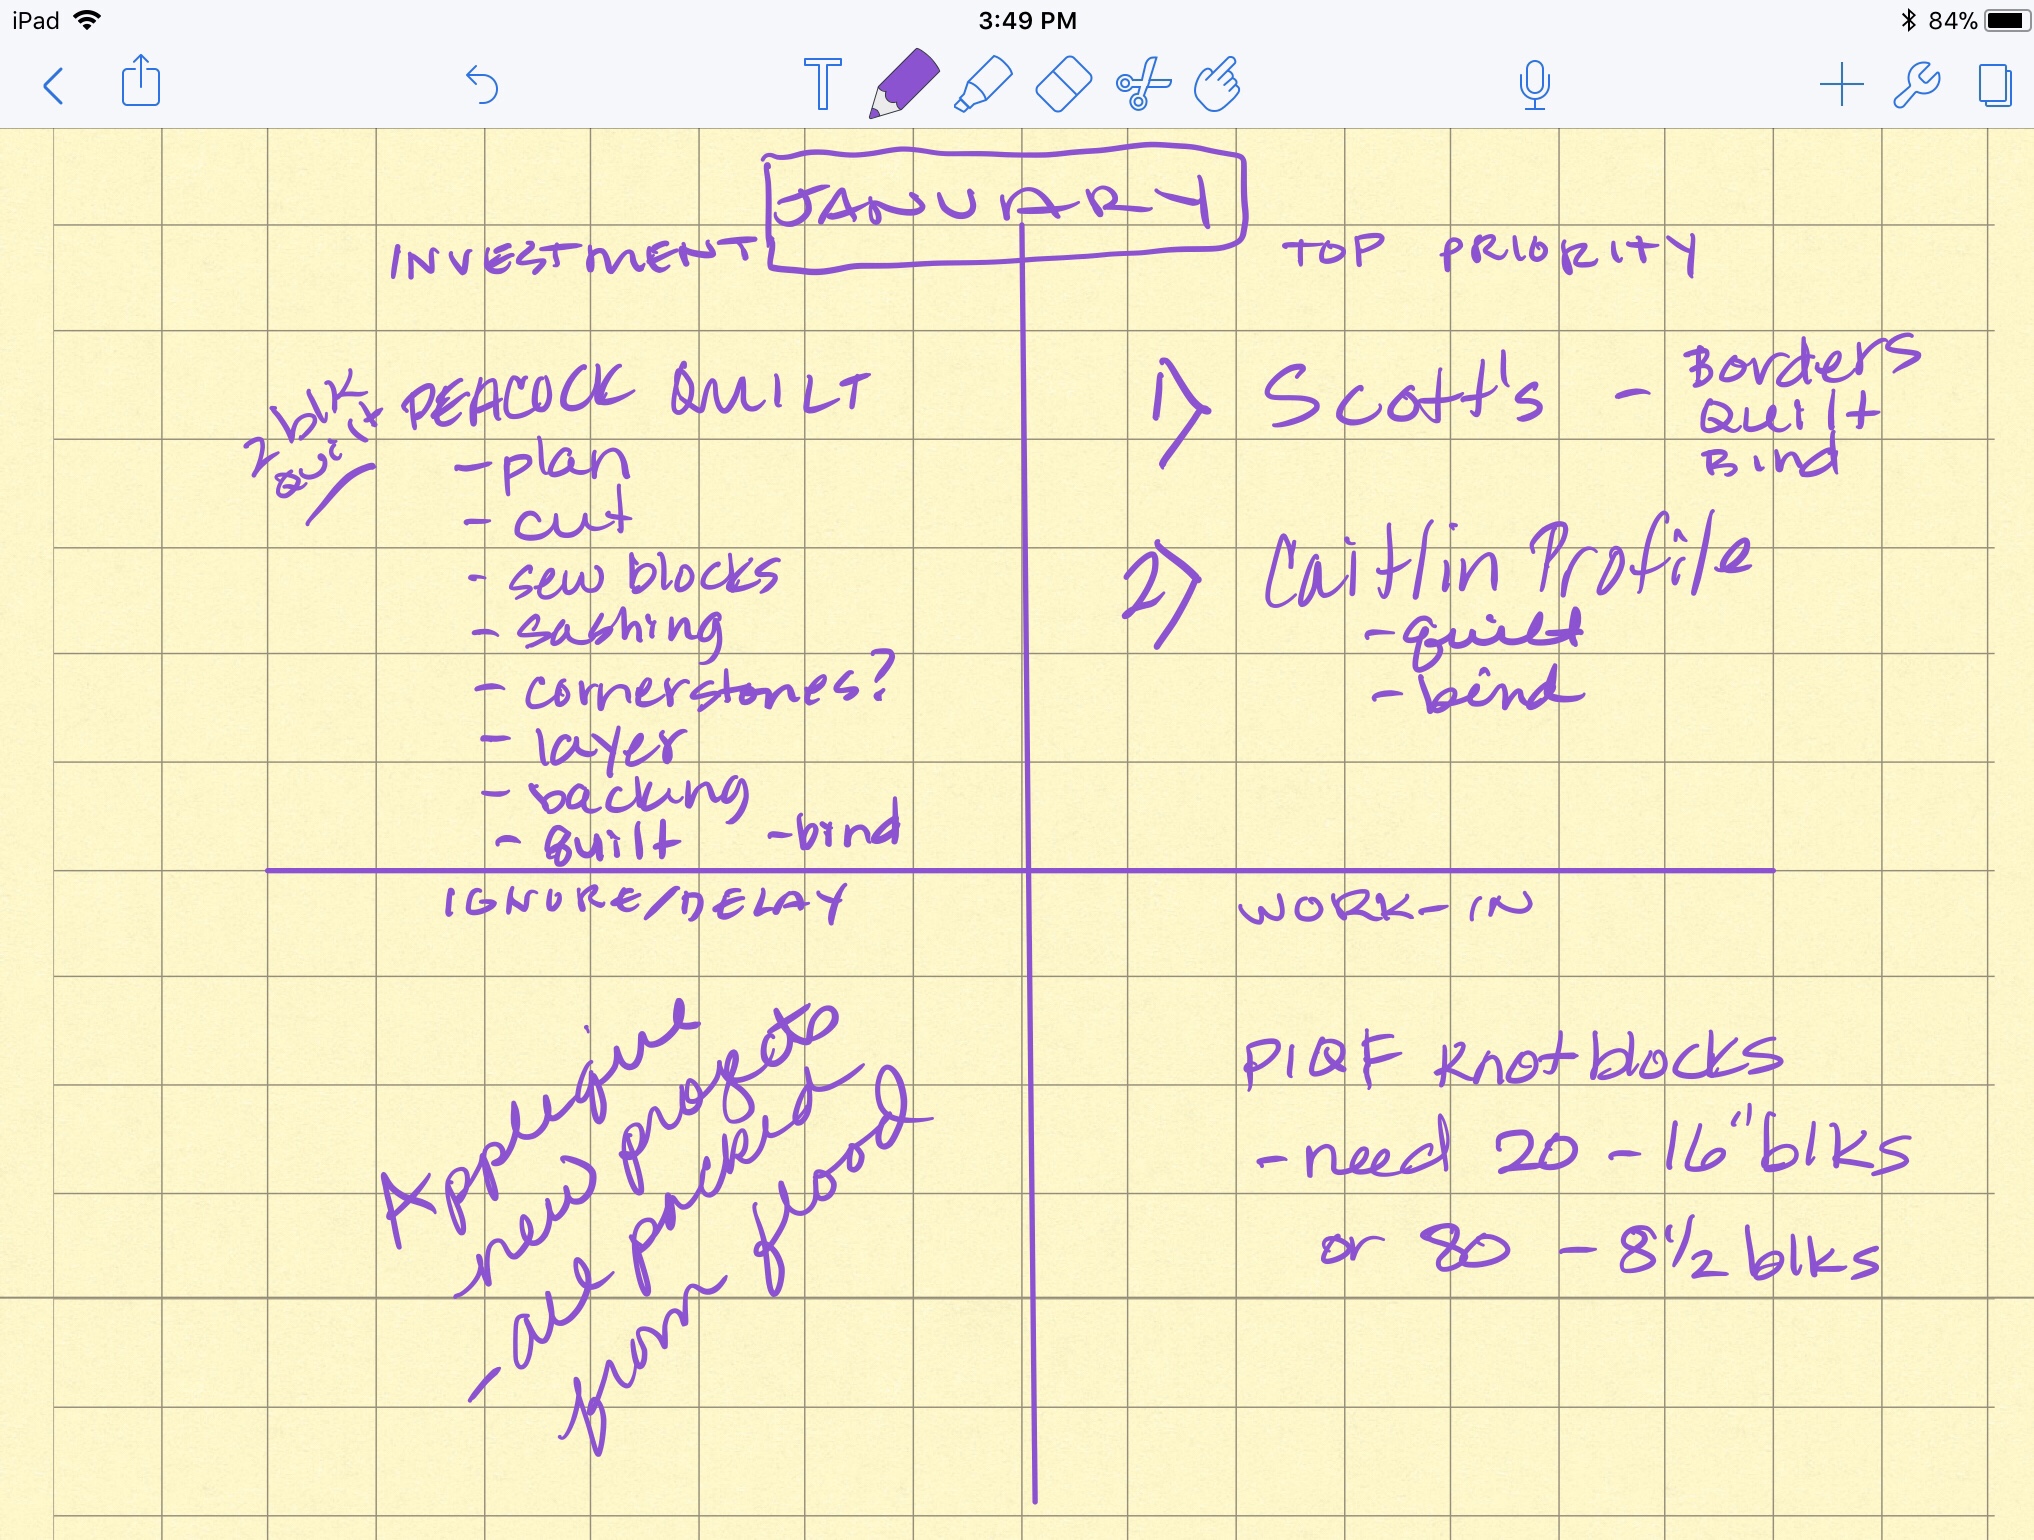 iPad
3:49 PM
84%
T
JANUARY
INVESTMENT
2 blk
quilt
PEACOCK QUILT
- plan
- cut
- sew blocks
- sashing
- cornerstones?
- layer
- backing
- quilt - bind
TOP PRIORITY
1> Scott's - Borders
Quilt
Bind
2> Caitlin Profile
- quilt
- bind
IGNORE/DELAY
Applique
new projects
- all packed
from flood
WORK-IN
PIQF Knotblocks
- need 20 - 16" blks
or 80 - 8 1/2 blks